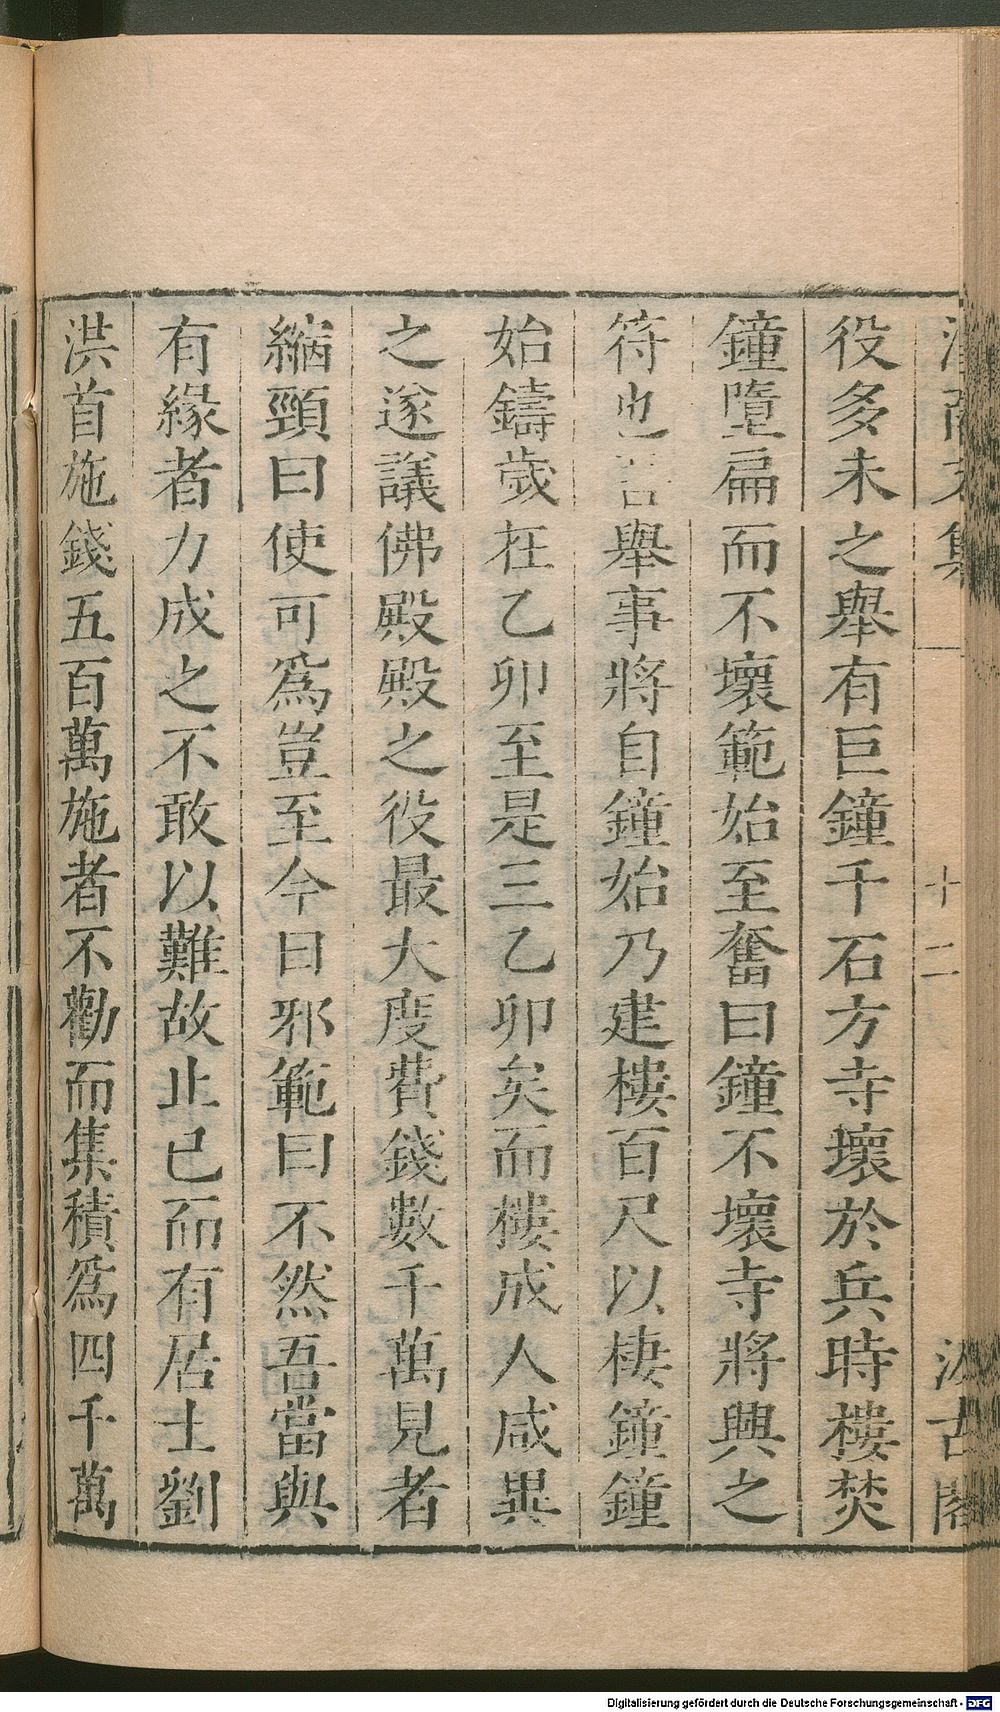 役多未之舉有巨鐘千石方寺壞於兵時樓焚
鐘墮扁而不壞範始至奮曰鐘不壞寺將興之
符也 舉事將自鐘始乃建樓百尺以棲鐘鐘
始鑄歲在乙卯至是三乙卯矣而樓成人咸異
之遂議佛殿殿之役最大度費錢數千萬見者
縮頸曰使可爲豈至今日邪範曰不然吾當與
有緣者力成之不敢以難故止已而有居士劉
洪首施錢五百萬施者不勸而集積爲四千萬
集 十二 古閣
Digitalisierung gefördert durch die Deutsche Forschungsgemeinschaft - DFG